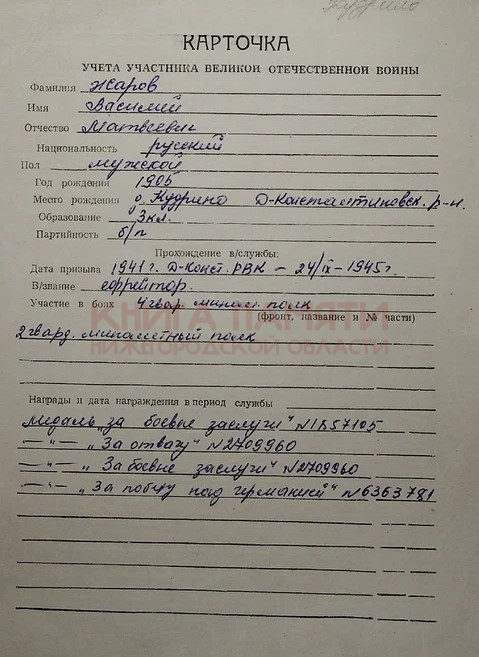 Кудрино
КАРТОЧКА
УЧЕТА УЧАСТНИКА ВЕЛИКОЙ ОТЕЧЕСТВЕННОЙ ВОЙНЫ
Фамилия Жаров
Имя Василий
Отчество Матвеевич
Национальность русский
Пол мужской
Год рождения 1905
Место рождения Кудрино Д-Константиновск. р-н.
Образование 3кл.
Партийность б/п
Прохождение в/службы:
Дата призыва 1941г. Д-Конст. РВК – 24/IX – 1945г.
В/звание ефрейтор.
Участие в боях 4 гвар. мином. полк
(фронт, название и № части)
2 гвард. минометный полк
КНИГА ПАМЯТИ
НИЖЕГОРОДСКОЙ ОБЛАСТИ
Награды и дата награждения в период службы
медаль „за боевые заслуги" N1857105
—"— „За отвагу" N2709960
—"— „За боевые заслуги" N2709960
—"— „За победу над германией" N6363781